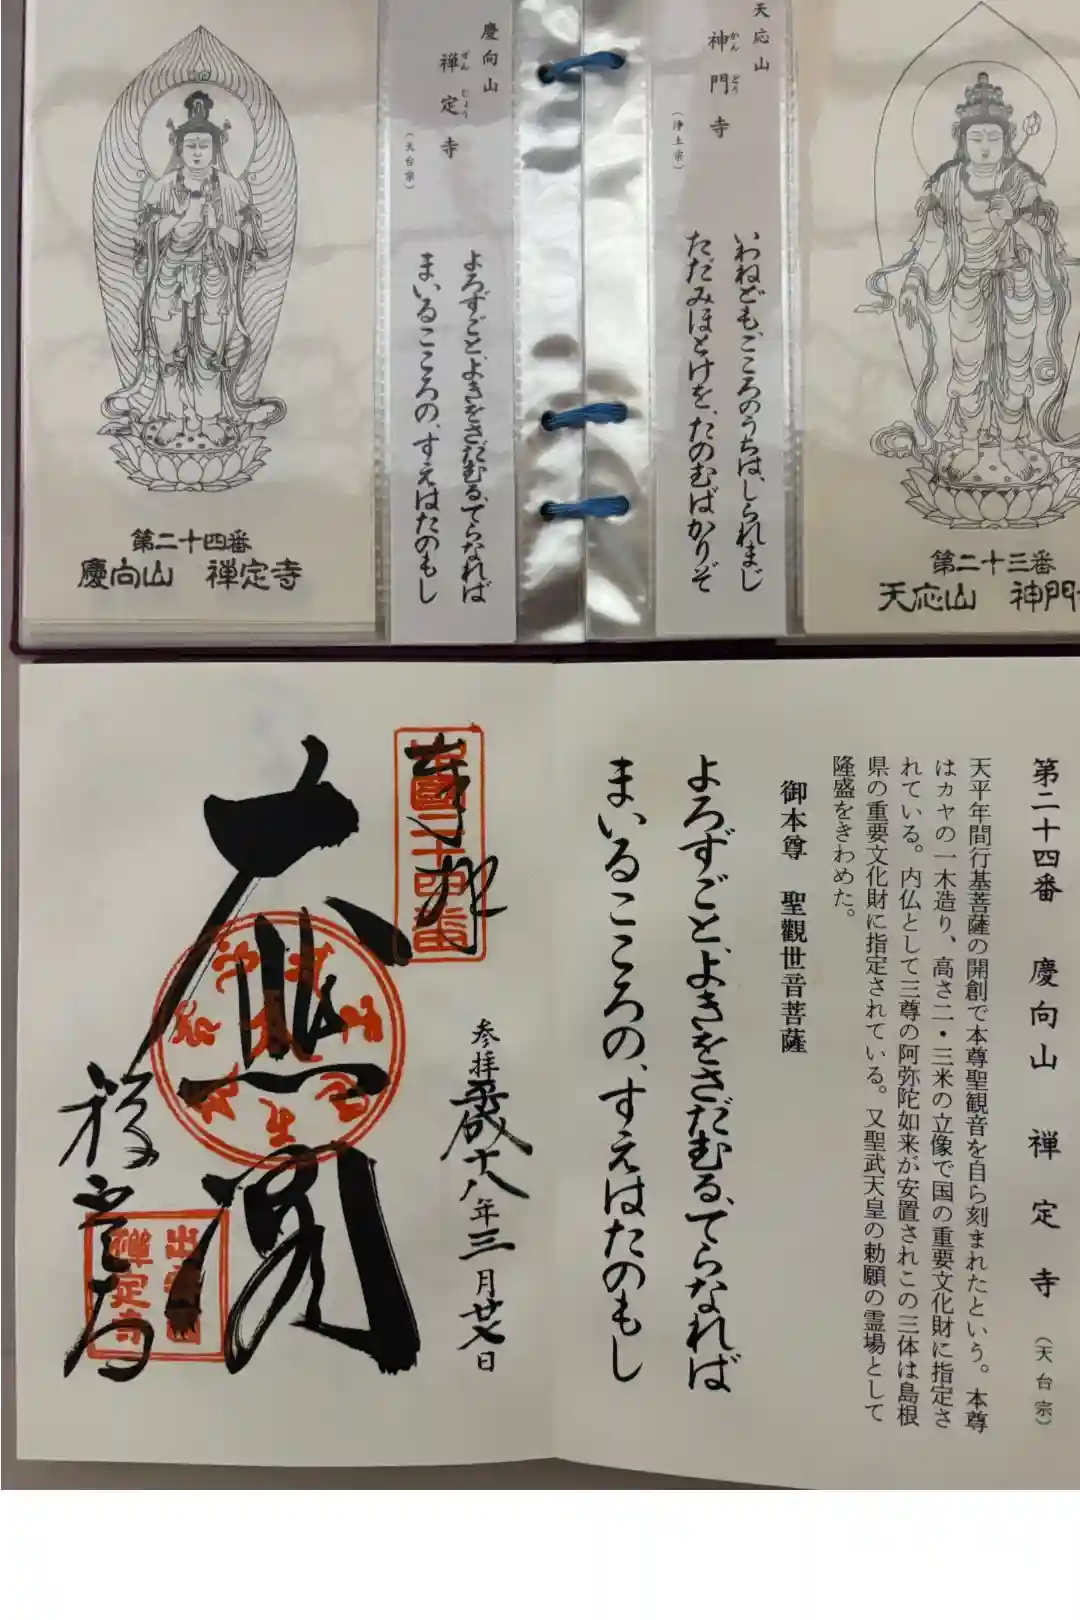 天応山
神門寺
かんどう
（浄土宗）
いわねども、こころのうちは、しられまじ
ただみほとけを、たのむばかりぞ
第二十三番
天応山 神門
慶向山
禅定寺
ぜんじょう
（天台宗）
よろずごと、よきをさだむる、てらなれば
まいるこころの、すえはたのもし
第二十四番
慶向山 禅定寺
第二十四番 慶向山 禅定寺（天台宗）
天平年間行基菩薩の開創で本尊聖観音を自ら刻まれたという。本尊
はカヤの一木造り、高さ二・三米の立像で国の重要文化財に指定さ
れている。内仏として三尊の阿弥陀如来が安置されこの三体は島根
県の重要文化財に指定されている。又聖武天皇の勅願の霊場として
隆盛をきわめた。
御本尊 聖觀世音菩薩
よろずごと、よきをさだむる、てらなれば
まいるこころの、すえはたのもし
奉拝
二十四番
参拝平成十八年三月廿七日
大悲閣
禅定寺
出雲國
禅定寺